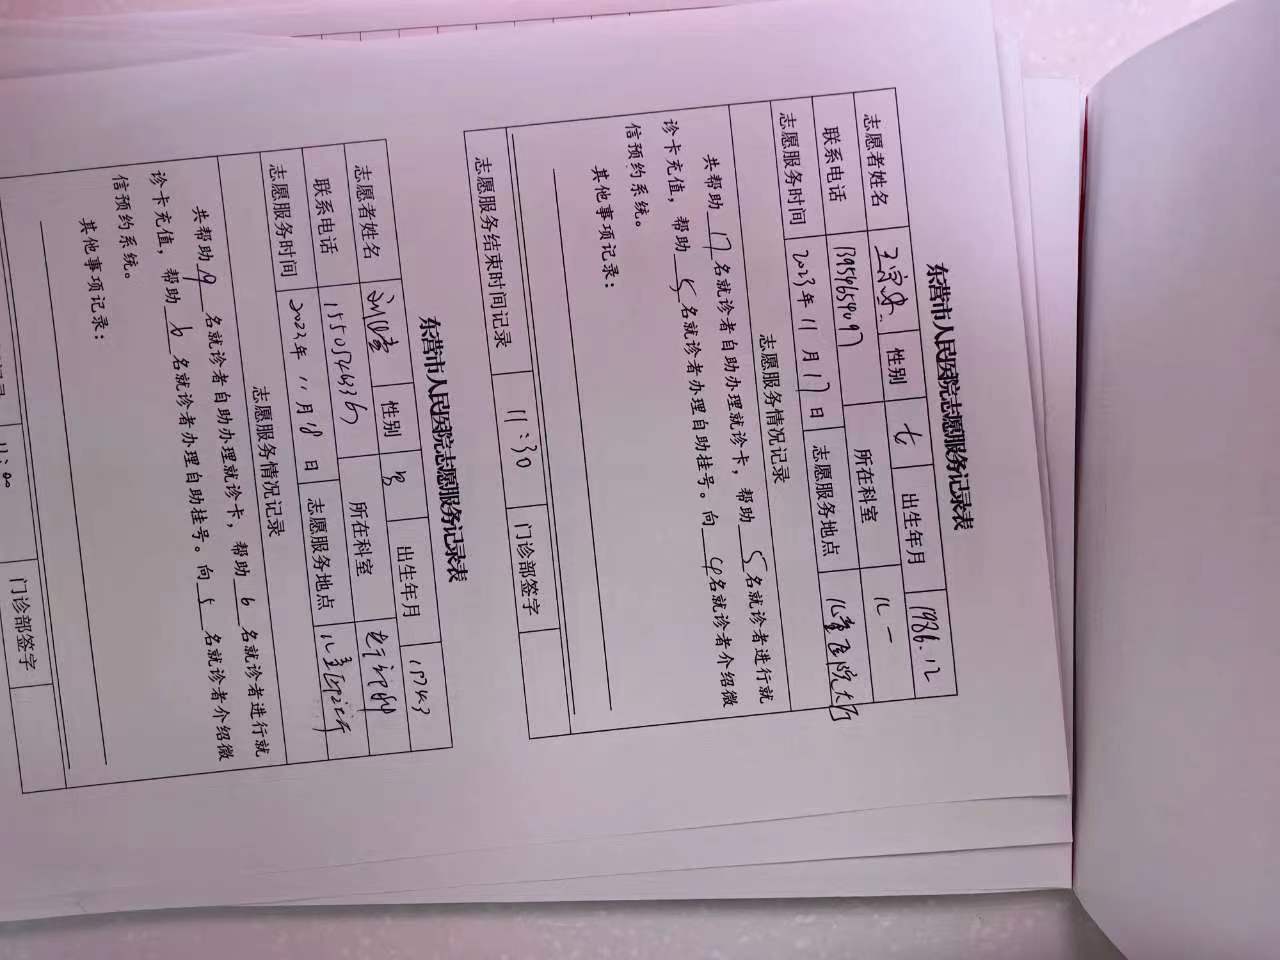 东营市人民医院志愿服务记录表
志愿者姓名 性别 女 出生年月 1986.12
联系电话 13954654097 所在科室 儿一
志愿服务时间 2023年 11 月 17 日 志愿服务地点 儿童医院大厅
志愿服务情况记录
共帮助 17 名就诊者自助办理就诊卡，帮助 5 名就诊者进行就
诊卡充值，帮助 5 名就诊者办理自助挂号。向 4 名就诊者介绍微
信预约系统。
其他事项记录：
志愿服务结束时间记录 11:30 门诊部签字
东营市人民医院志愿服务记录表
志愿者姓名 性别 男 出生年月
联系电话 15505464336 所在科室
志愿服务时间 2023年 11 月 18 日 志愿服务地点
志愿服务情况记录
共帮助 19 名就诊者自助办理就诊卡，帮助 6 名就诊者进行就
诊卡充值，帮助 6 名就诊者办理自助挂号。向 5 名就诊者介绍微
信预约系统。
其他事项记录：
11:00 门诊部签字